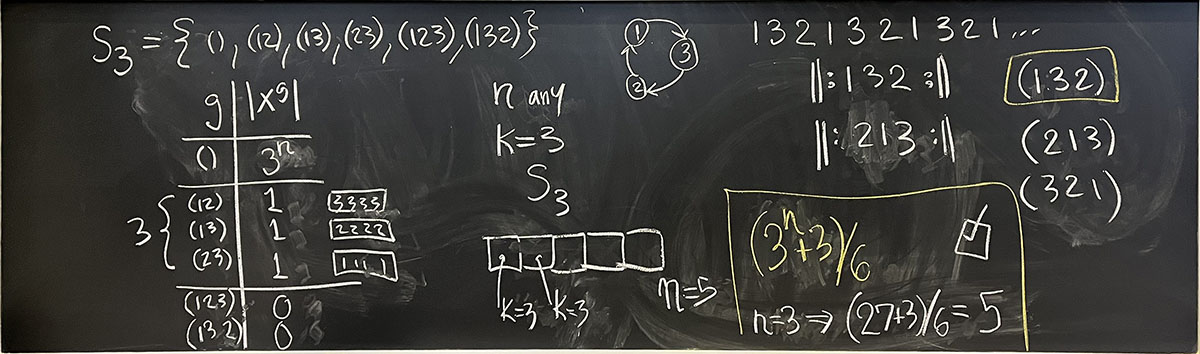 S₃ = { (), (12), (13), (23), (123), (132) }
1 3 2
1 3 2 1 3 2 1 3 2 1 ...
‖: 1 3 2 :‖
‖: 2 1 3 :‖
(1 3 2)
(2 1 3)
(3 2 1)
g | |X^g|
() | 3^n
3 {
(12) | 1 3333
(13) | 1 2222
(23) | 1 1111
(123) | 0
(132) | 0
n any
k=3
S₃
k=3 k=3
n=5
(3^n+3)/6
n=3 ⇒ (27+3)/6 = 5